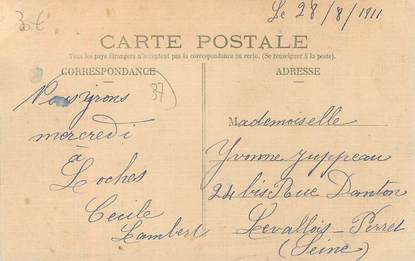 30 €
Le 28/8/1911
CARTE POSTALE
Tous les pays étrangers n'acceptent pas la correspondance au recto. (Se renseigner à la poste).
CORRESPONDANCE
ADRESSE
37
irons
mercredi
à
Loches
Cécile
Lambert
Mademoiselle
Yvonne Juppeau
24 bis Rue Danton
Levallois-Perret
(Seine)